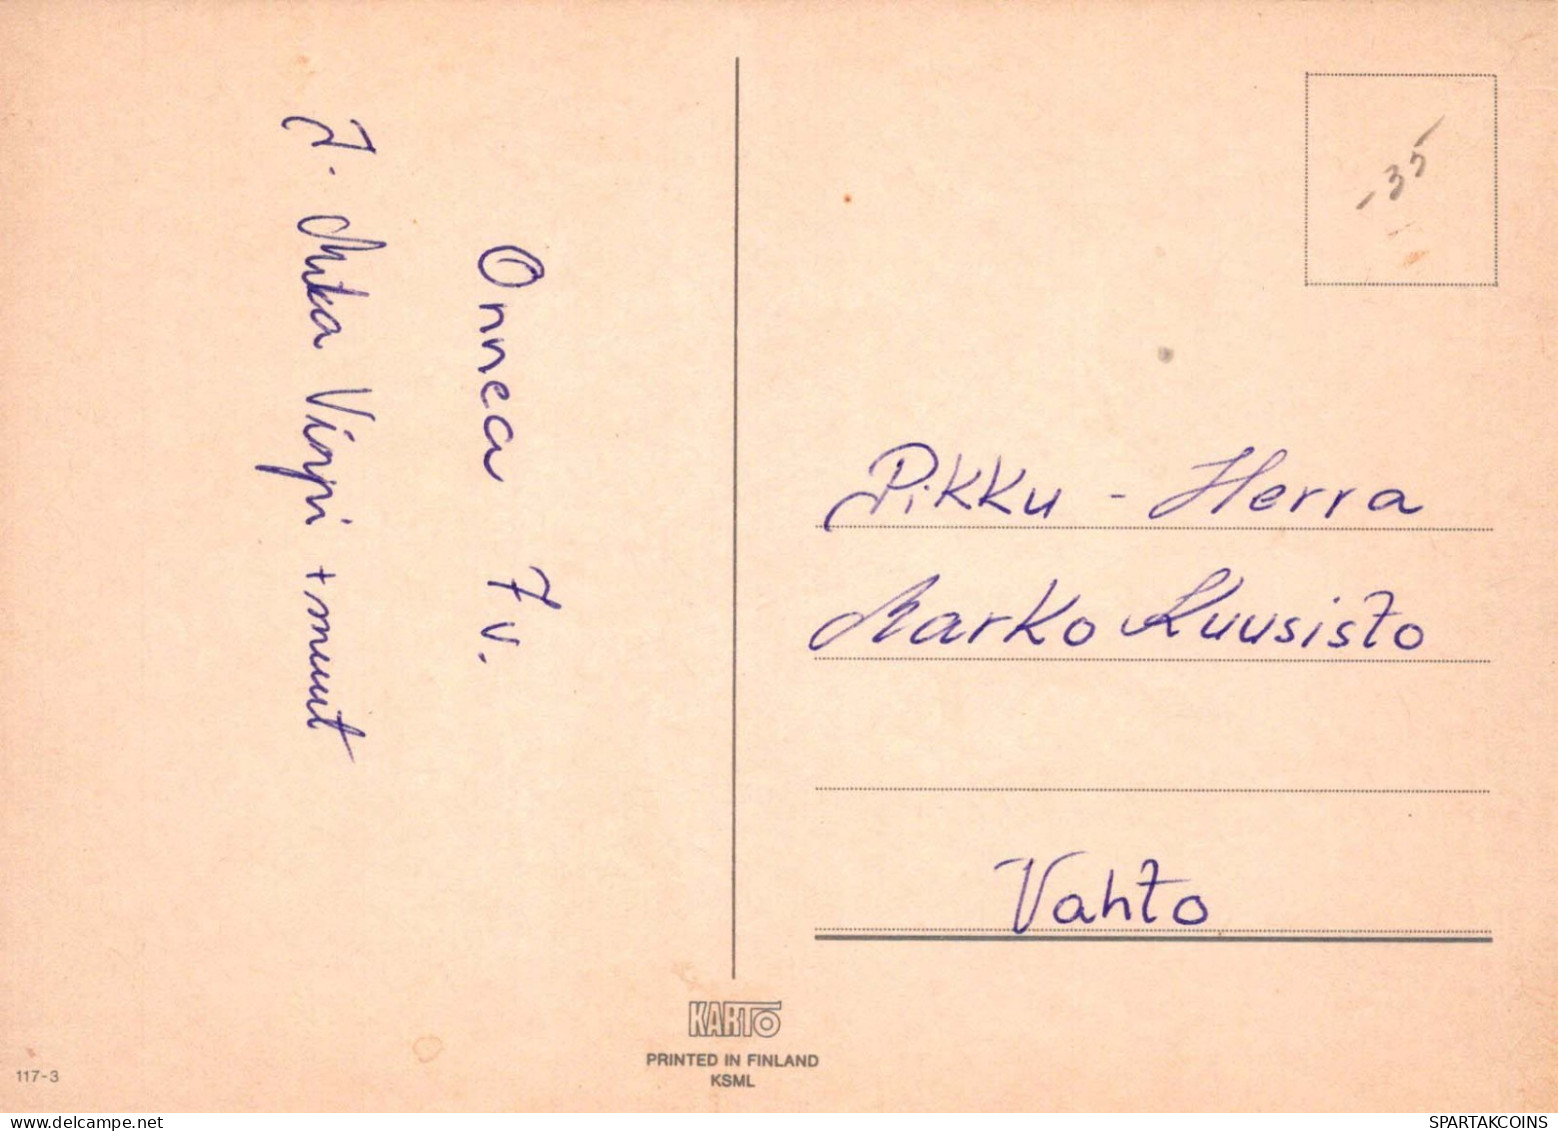 Onnea 7 v.
T. Mika Virpi + muut
-35
Pikku - Herra
Marko Kuusisto
Vahto
KARTO
PRINTED IN FINLAND
KSML
117-3
delcampe.net
SPARTAKCOINS